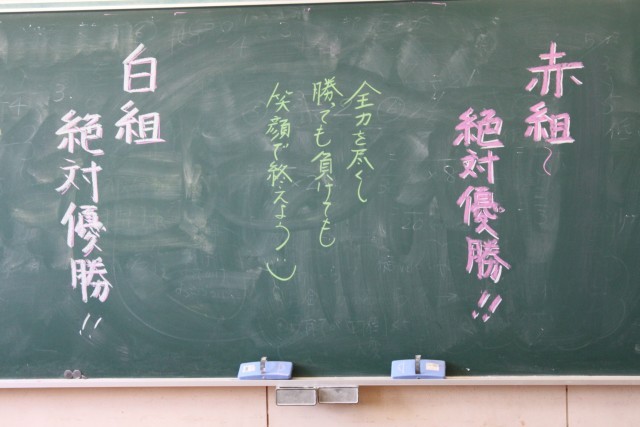 赤組〜
絶対優勝!!
全力を尽くし
勝ても負けても
笑顔で終えよう
白組
絶対優勝!!